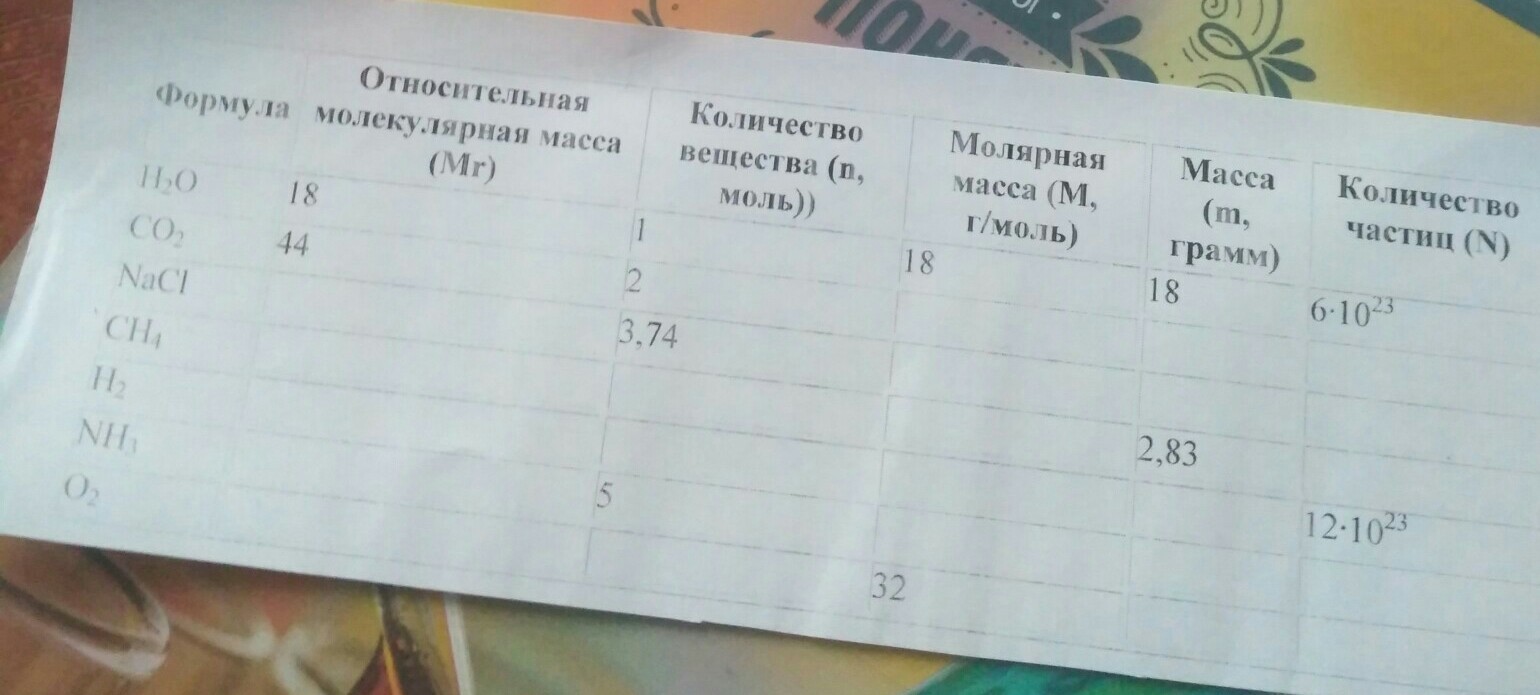 Формула
Относительная
молекулярная масса
(Mr)
Количество
вещества (n,
моль))
Молярная
масса (М,
г/моль)
Масса
(m,
грамм)
Количество
частиц (N)
H₂O 18 1 18 18 6·10²³
CO₂ 44 2
NaCl 3,74
CH₄ 2,83
H₂ 12·10²³
NH₃ 5
O₂ 32